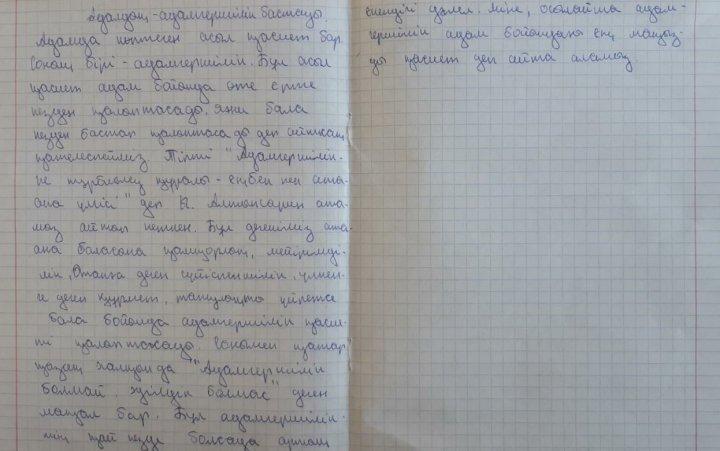 Адалдық - адамгершіліктің бастауы.
Адамда көптеген асыл қасиет бар.
Соның бірі - адамгершілік. Бұл асыл
қасиет адам бойында өте ерте
кезден қалыптасады. Яғни бала
кезден бастап қалыптасады деп айтсақ
қателеспейміз. Тіпті "Адамгершілік-
ке тәрбиелеу құралы - еңбек пен ата-
ана үлгісі" деп Ы. Алтынсарин ата-
мыз айтып кеткен. Бұл дегеніміз ата-
ана баласына қамқорлық, мейірімді-
лік, Отанға деген сүйіспеншілік, үлкен-
ге деген құрмет, тануды үйретсе
бала бойында адамгершілік қасие-
ті қалыптасады. Сонымен қатар
қазақ халқында "Адамгершілік
болмай, әділдік болмас" деген
мақал бар. Бұл адамгершілік-
тің қай кезде болсада артық
екендігі дәлел. Міне, осылайша адам-
гершілік адам бойындағы ең маңыз-
ды қасиет деп айта аламыз.